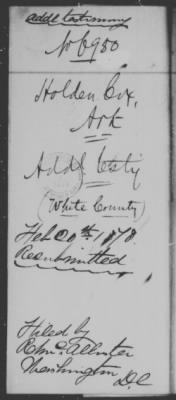 addl testimony
No 6950
Holden Cox,
Ark
Addl testy
White County
Feb 20th 1878.
Resubmitted
Filed by
Washington
D.C